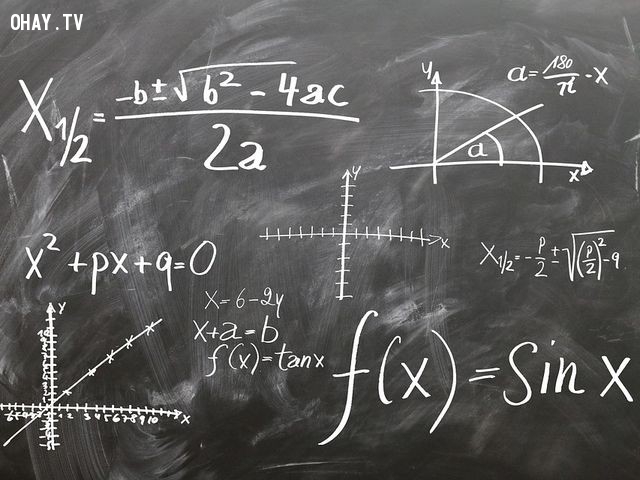 OHAY.TV
X₁/₂ = (-b ± √(b² - 4ac)) / 2a
y
a = 180/π · x
a
x
y
x
x² + px + q = 0
x₁/₂ = -p/2 ± √((p/2)² - q)
x = 6 - 2y
x + a = b
f(x) = tanx
f(x) = Sin x
y
x